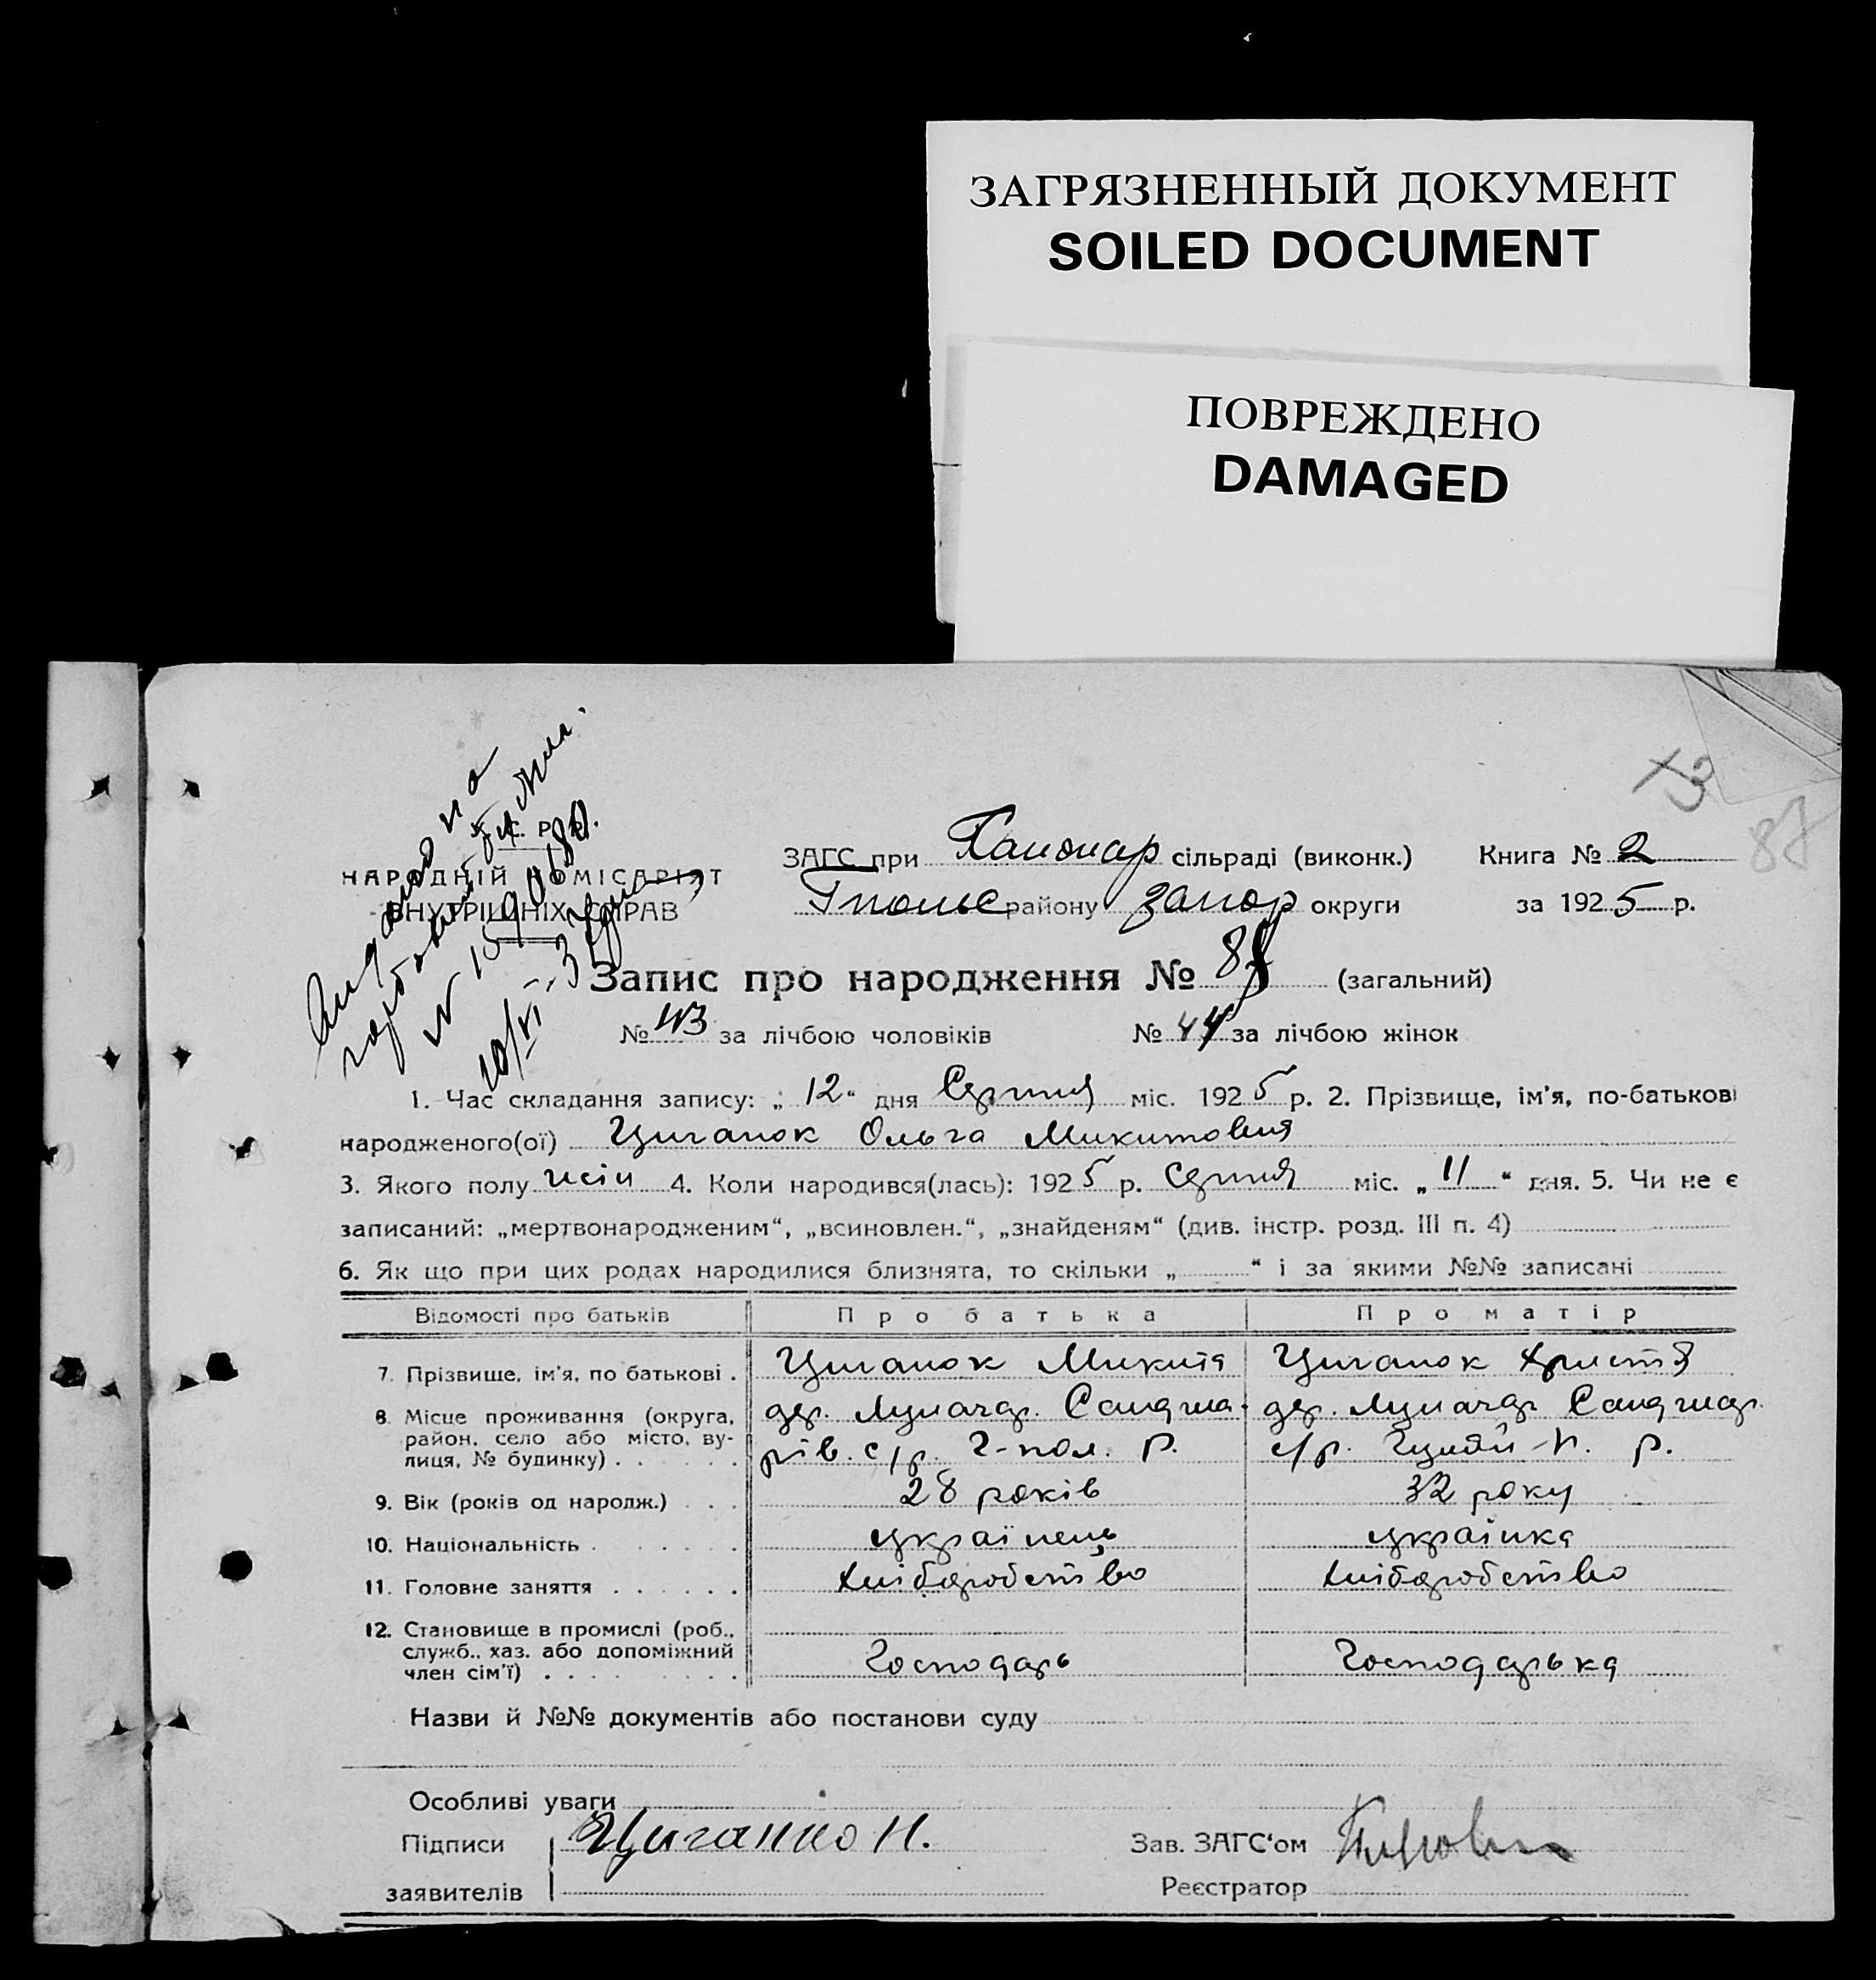 ЗАГРЯЗНЕННЫЙ ДОКУМЕНТ
SOILED DOCUMENT
ПОВРЕЖДЕНО
DAMAGED
87
НАРОДНІЙ КОМІСАРІЯТ
ВНУТРІШНІХ СПРАВ
ЗАГС при сільраді (виконк.) Книга № 2
району Запор округи за 1925 р.
Запис про народження № (загальний)
№ 43 за лічбою чоловіків № 44 за лічбою жінок
1. Час складання запису: „12“ дня Серпня міс. 1925 р. 2. Прізвище, ім'я, по-батькові
народженого(ої) Циганок Ольга Микитовня
3. Якого полу жін 4. Коли народився(лась): 1925 р. Серпня міс. „11“ дня. 5. Чи не є
записаний: „мертвонародженим“, „всиновлен.“, „знайденям“ (див. інстр. розд. III п. 4)
6. Як що при цих родах народилися близнята, то скільки „ “ і за якими №№ записані
Відомості про батьків Про батька Про матір
7. Прізвище, ім'я, по батькові . Циганок Микита Циганок Христя
8. Місце проживання (округа, район, село або місто, вулиця, № будинку) . . . . . .
дер. с/р. р.
дер. с/р. р.
9. Вік (років од народж.) . . . 28 років 32 року
10. Національність . . . . . . українець українка
11. Головне заняття . . . . . . хліборобство хліборобство
12. Становище в промислі (роб., служб., хаз. або допоміжний член сім'ї) . . . . . . Господарь Господарька
Назви й №№ документів або постанови суду
Особливі уваги
Підписи Зав. ЗАГС'ом
заявителів Реєстратор